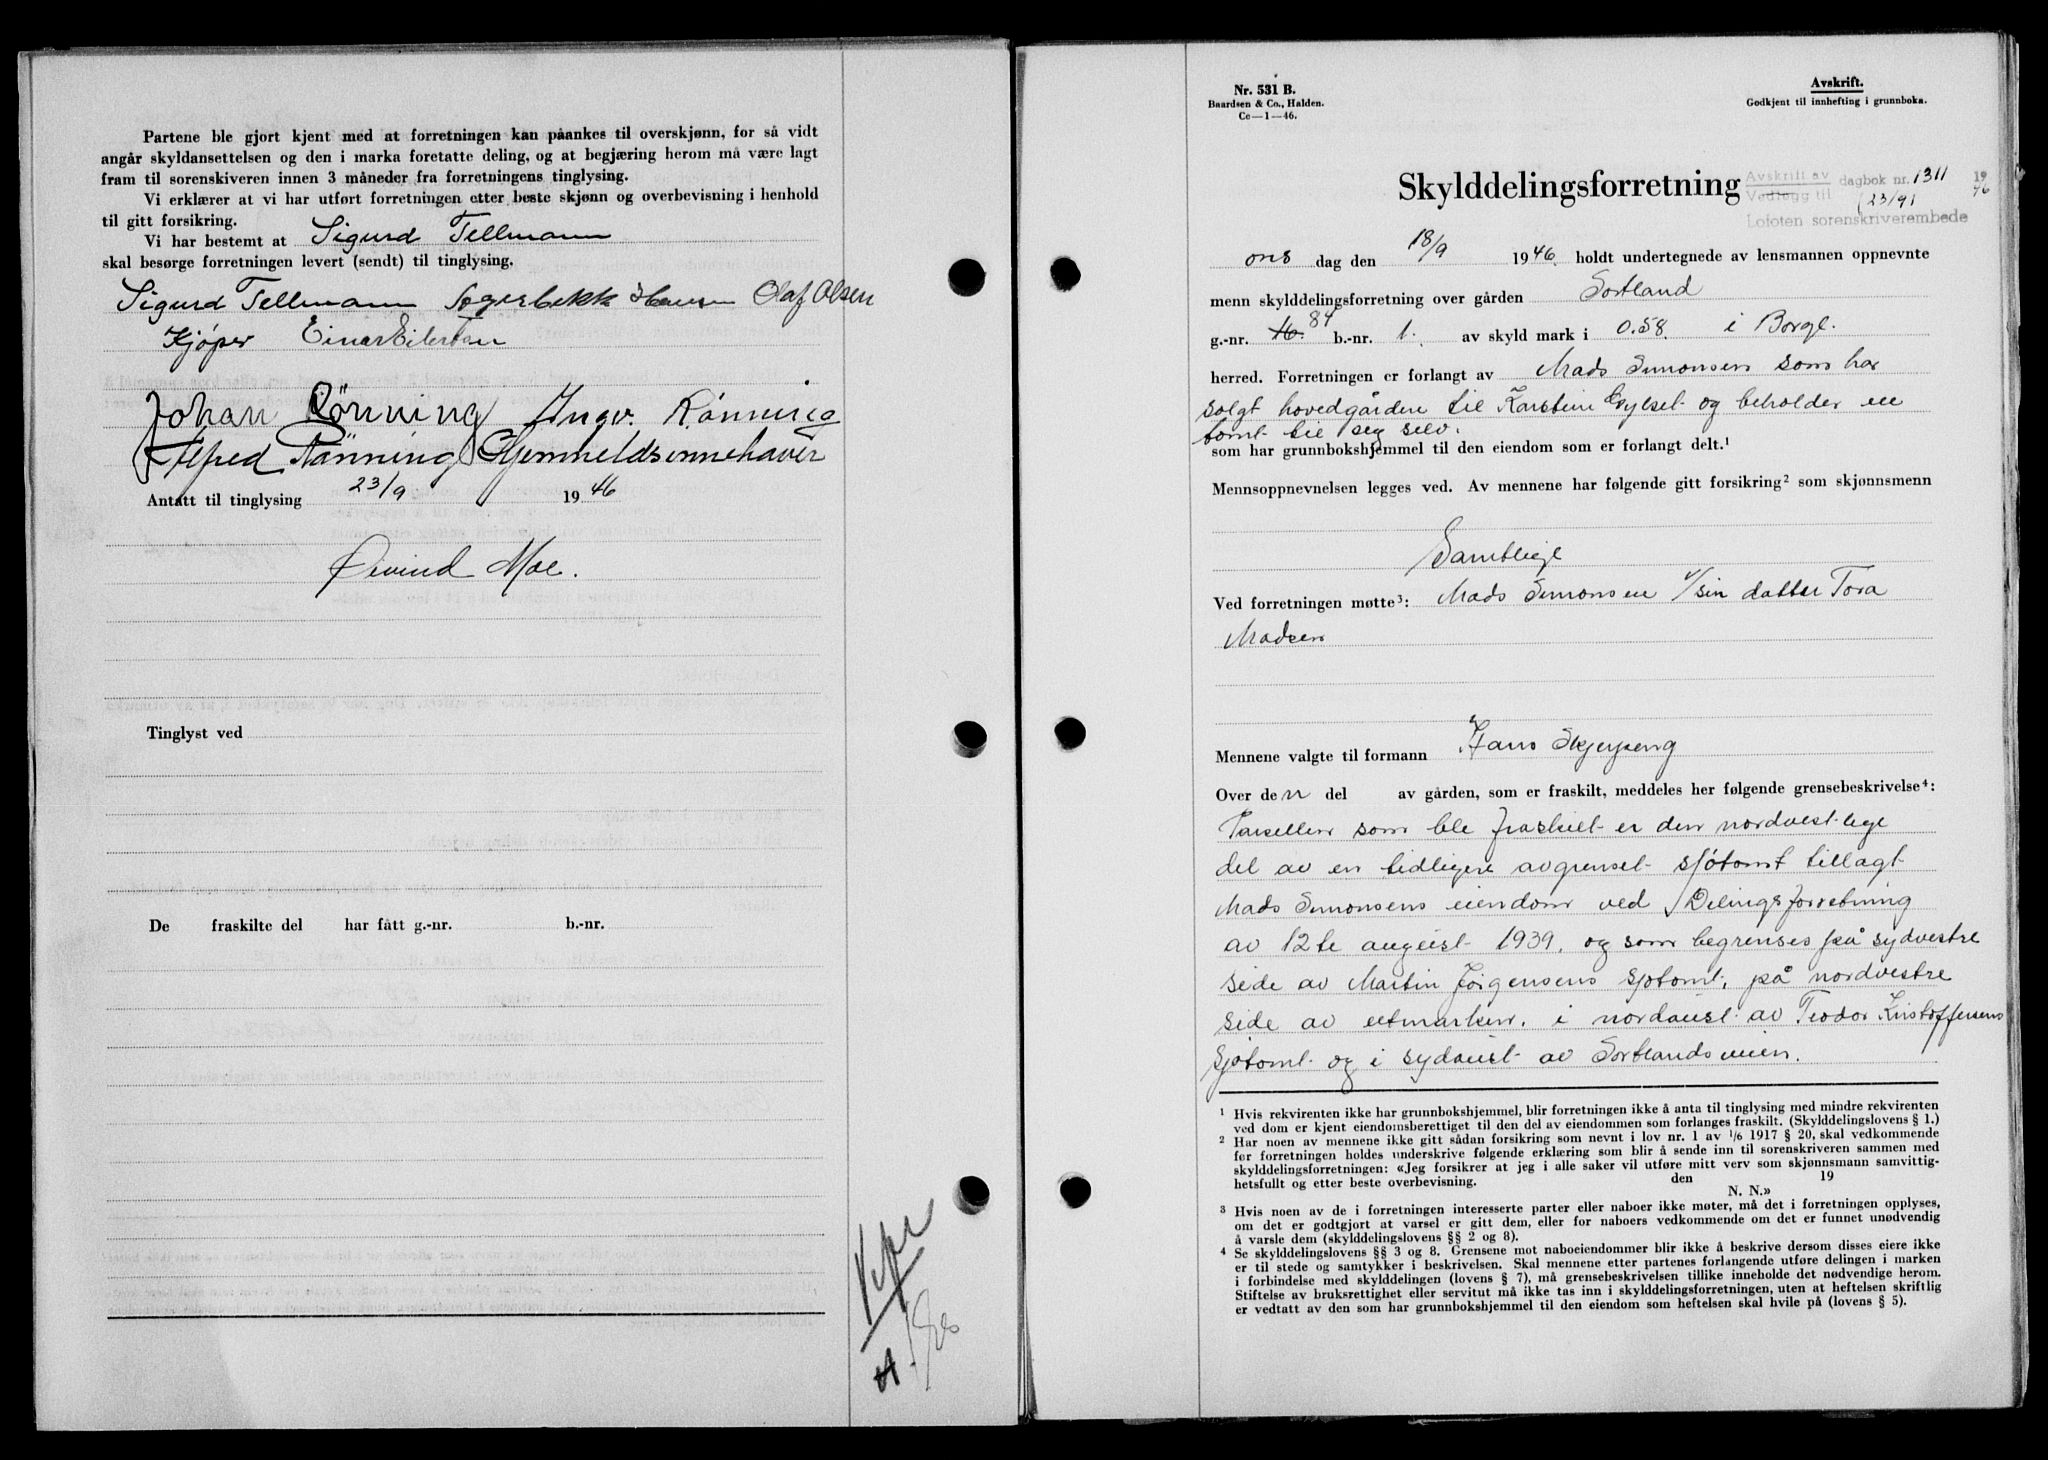 Partene ble gjort kjent med at forretningen kan påankes til overskjønn, for så vidt
angår skyldansettelsen og den i marka foretatte deling, og at begjæring herom må være lagt
fram til sorenskriveren innen 3 måneder fra forretningens tinglysing.
Vi erklærer at vi har utført forretningen etter beste skjønn og overbevisning i henhold
til gitt forsikring.
Vi har bestemt at Sigurd Tellmann
skal besørge forretningen levert (sendt) til tinglysing.
Sigurd Tellmann Hans Olaf Olsen
Kjøper Einar Eilertsen
Johan Rönning Ingv. Rønning
Alfred Rönning Hjemmeldsinnehaver
Antatt til tinglysing 23/9 1946
Øivind Moe.
Tinglyst ved
De fraskilte del har fått g.-nr. b.-nr.
Nr. 531 B.
Baardsen & Co., Halden.
Ce—1—46.
Avskrift.
Godkjent til innhefting i grunnboka.
Skylddelingsforretning
Avskrift av
Vedlegg til
dagbok nr. 1311 1946
(23/9)
Lofoten sorenskriverembede
ons dag den 18/9 1946. holdt undertegnede av lensmannen oppnevnte
menn skylddelingsforretning over gården Sortland
g.-nr. 16. 84 b.-nr. 1. av skyld mark i 0.58. i Borge.
herred. Forretningen er forlangt av Mads Simonsen som har
solgt hovedgården til Karstein Gylset og beholder en
tomt til seg selv.
som har grunnbokshjemmel til den eiendom som er forlangt delt.¹
Mennsoppnevnelsen legges ved. Av mennene har følgende gitt forsikring² som skjønnsmenn
Samtlige
Ved forretningen møtte³: Mads Simonsen v/sin datter Tora
Madsen
Mennene valgte til formann Hans Skjerpeng
Over den del av gården, som er fraskilt, meddeles her følgende grensebeskrivelse⁴:
Parsellen som ble fraskilt er den nordvestlige
del av en tidligere avgrenset sjøtomt tillagt
Mads Simonsens eiendom ved Delingsforretning
av 12te august 1939. og som begrenses på sydvestre
side av Martin Jørgensens sjøtomt, på nordvestre
side av utmarken. i nordaust av Teodor Kristoffersens
sjøtomt og i sydaust av Sortlandsveien.
¹ Hvis rekvirenten ikke har grunnbokshjemmel, blir forretningen ikke å anta til tinglysing med mindre rekvirenten
ved dom er kjent eiendomsberettiget til den del av eiendommen som forlanges fraskilt. (Skylddelingslovens § 1.)
² Har noen av mennene ikke gitt sådan forsikring som nevnt i lov nr. 1 av 1/6 1917 § 20, skal vedkommende
før forretningen holdes underskrive følgende erklæring som blir å sende inn til sorenskriveren sammen med
skylddelingsforretningen: «Jeg forsikrer at jeg i alle saker vil utføre mitt verv som skjønnsmann samvittig-
hetsfullt og etter beste overbevisning. den 19
N. N.»
³ Hvis noen av de i forretningen interesserte parter eller naboer ikke møter, må det i forretningen opplyses,
om det er godtgjort at varsel er gitt dem, eller for naboers vedkommende om det er funnet unødvendig
å varsle dem (skylddelingslovens §§ 2 og 8).
⁴ Se skylddelingslovens §§ 3 og 8. Grensene mot naboeiendommer blir ikke å beskrive dersom disses eiere ikke
er til stede og samtykker i beskrivelsen. Skal mennene etter partenes forlangende utføre delingen i marken
i forbindelse med skylddelingen (lovens § 7), må grensebeskrivelsen tillike inneholde det nødvendige herom.
Stiftelse av bruksrettighet eller servitut må ikke tas inn i skylddelingsforretningen, uten at heftelsen skriftlig
er vedtatt av den som har grunnbokshjemmel til den eiendom som heftelsen skal hvile på (lovens § 5).